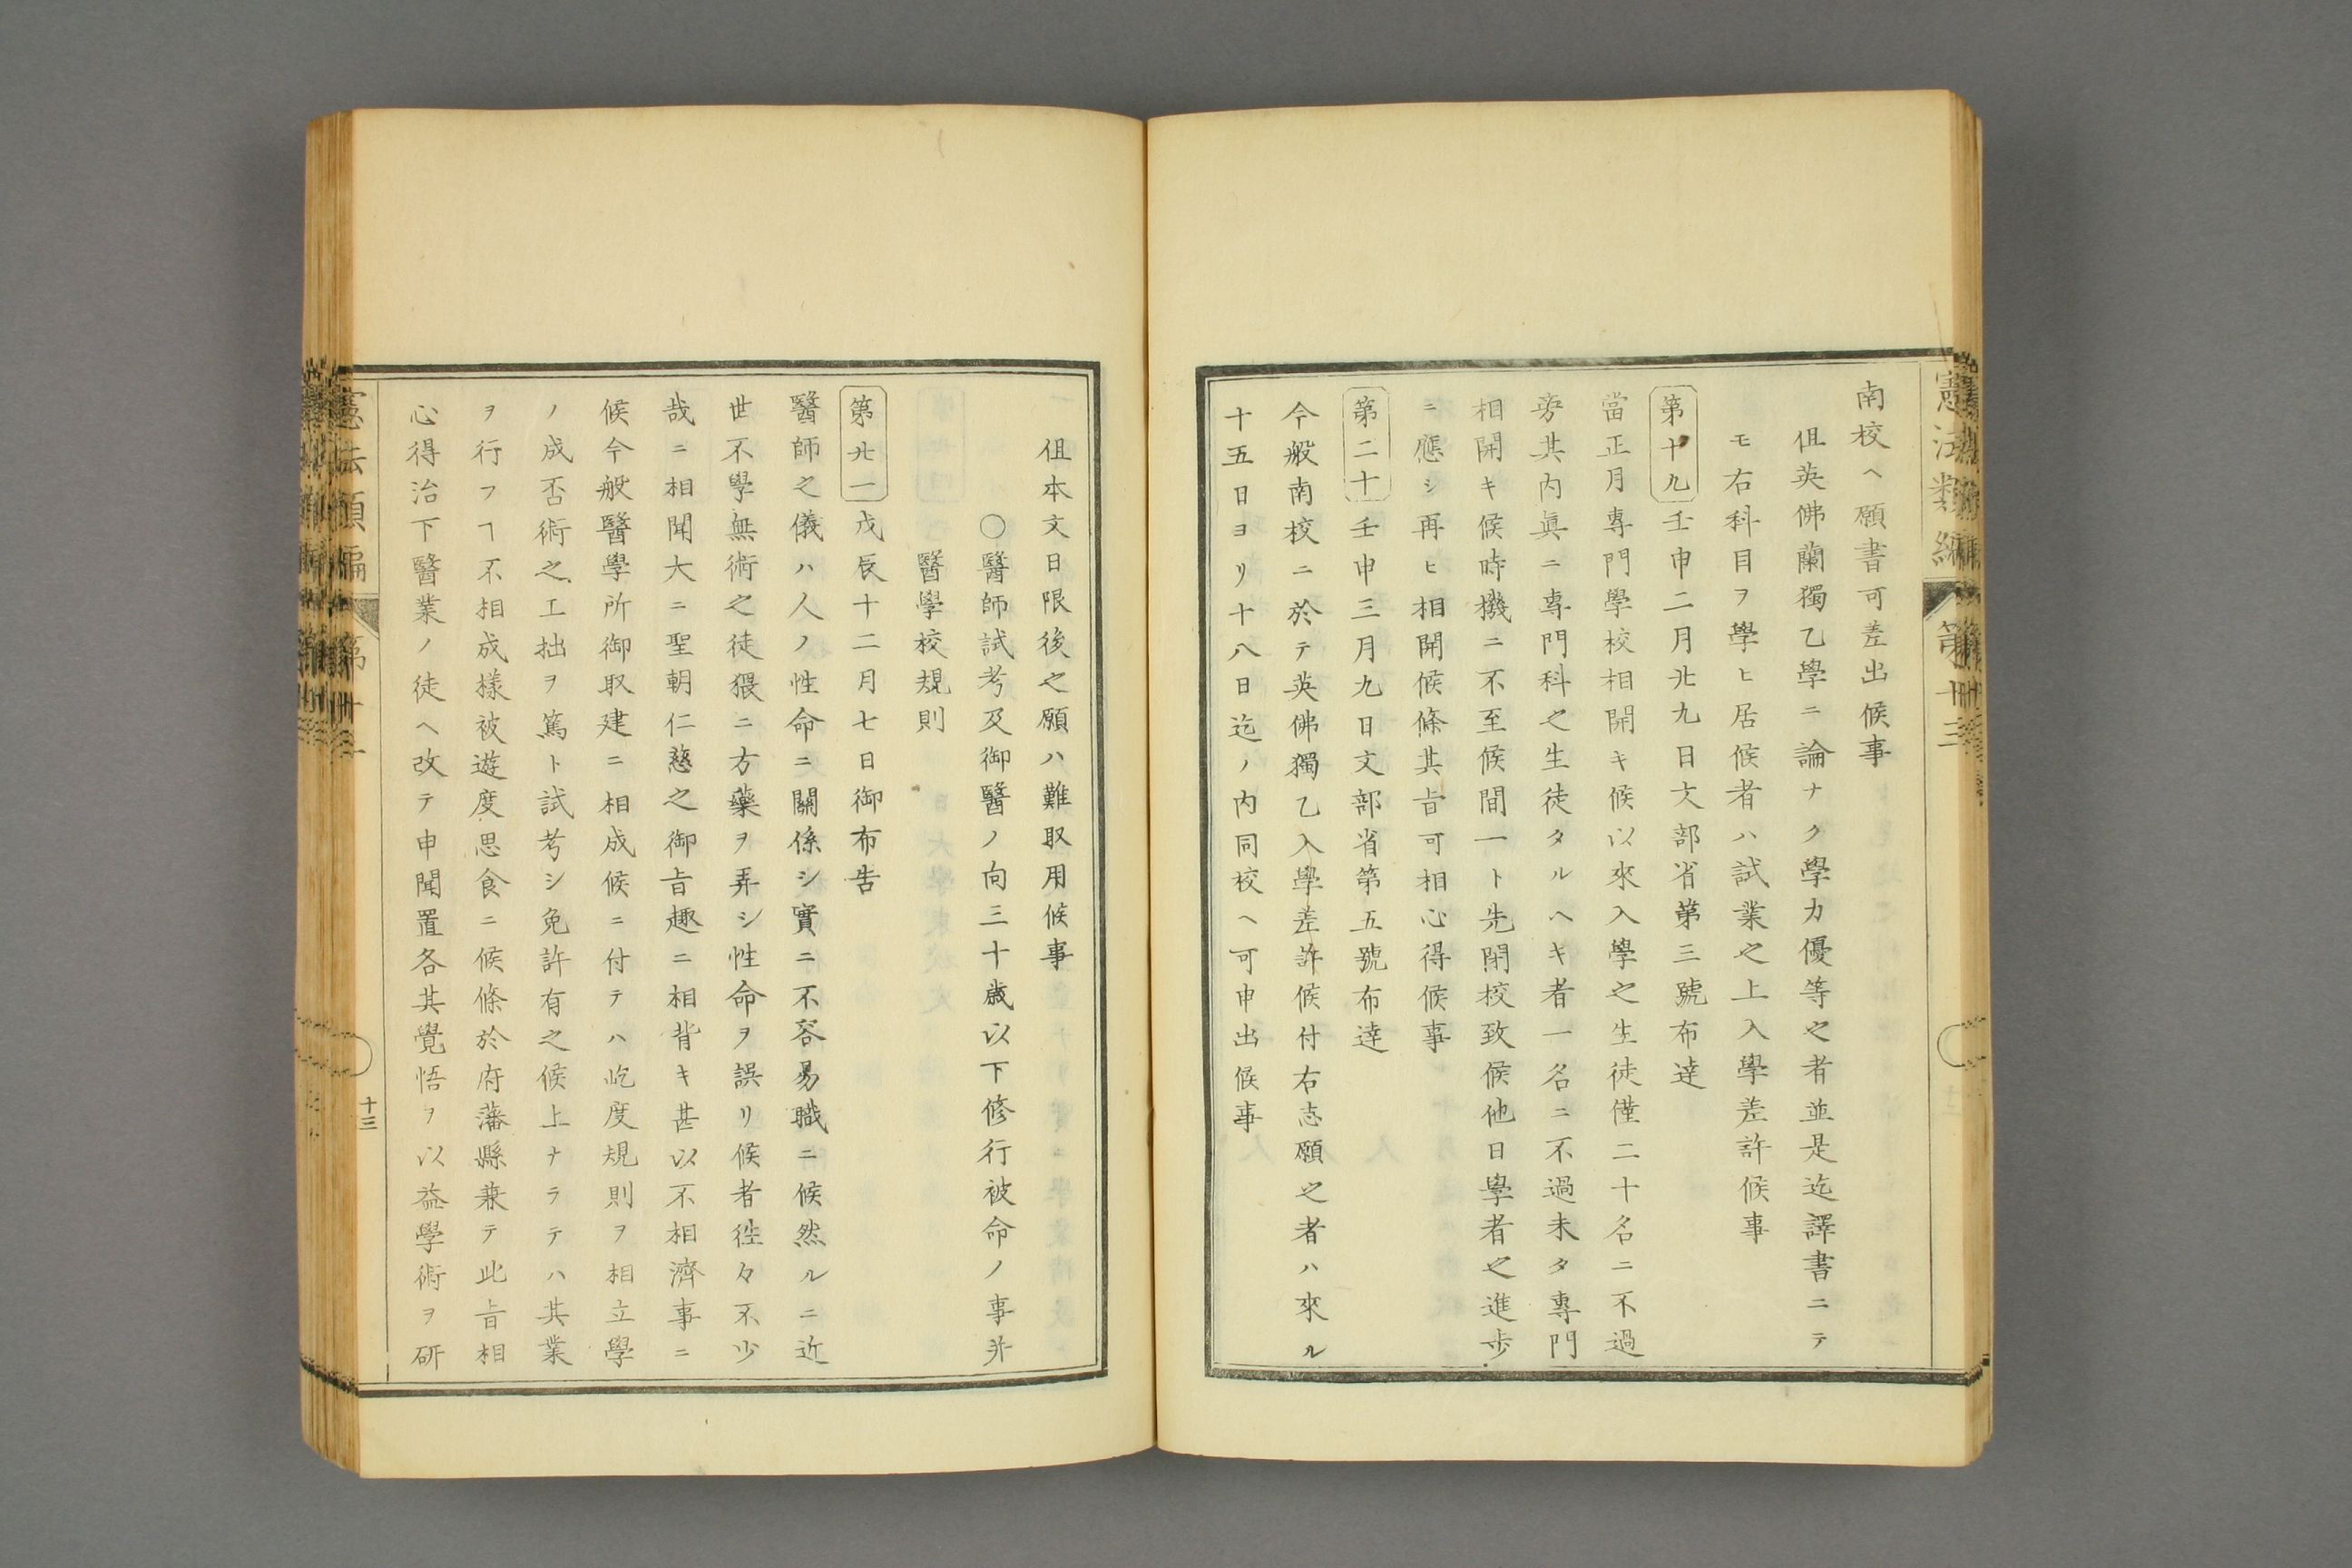 憲法類編 第十三
南校ヘ願書可差出候事
但英佛蘭獨乙學ニ論ナク學力優等之者並是迄譯書ニテ
モ右科目ヲ學ヒ居候者ハ試業之上入學差許候事
第十九 壬申二月廿九日文部省第三號布達
當正月專門學校相開キ候以來入學之生徒僅二十名ニ不過
旁其内眞ニ專門科之生徒タルヘキ者一名ニ不過未タ專門
相開キ候時機ニ不至候間一ト先閉校致候他日學者之進歩
ニ應シ再ヒ相開候條其旨可相心得候事
第二十 壬申三月九日文部省第五號布達
今般南校ニ於テ英佛獨乙入學差許候付右志願之者ハ來ル
十五日ヨリ十八日迄ノ内同校ヘ可申出候事
但本文日限後之願ハ難取用候事
○醫師試考及御醫ノ向三十歳以下修行被命ノ事并
醫學校規則
第廿一 戊辰十二月七日御布告
醫師之儀ハ人ノ性命ニ關係シ實ニ不容易職ニ候然ルニ近
世不學無術之徒猥ニ方藥ヲ弄シ性命ヲ誤リ候者徃々不少
哉ニ相聞大ニ聖朝仁慈之御旨趣ニ相背キ甚以不相濟事ニ
候今般醫學所御取建ニ相成候ニ付テハ屹度規則ヲ相立學
ノ成否術之工拙ヲ篤ト試考シ免許有之候上ナラテハ其業
ヲ行フヿ不相成樣被遊度思食ニ候條於府藩縣兼テ此旨相
心得治下醫業ノ徒ヘ改テ申聞置各其覺悟ヲ以益學術ヲ研
憲法類編 第十三
十三